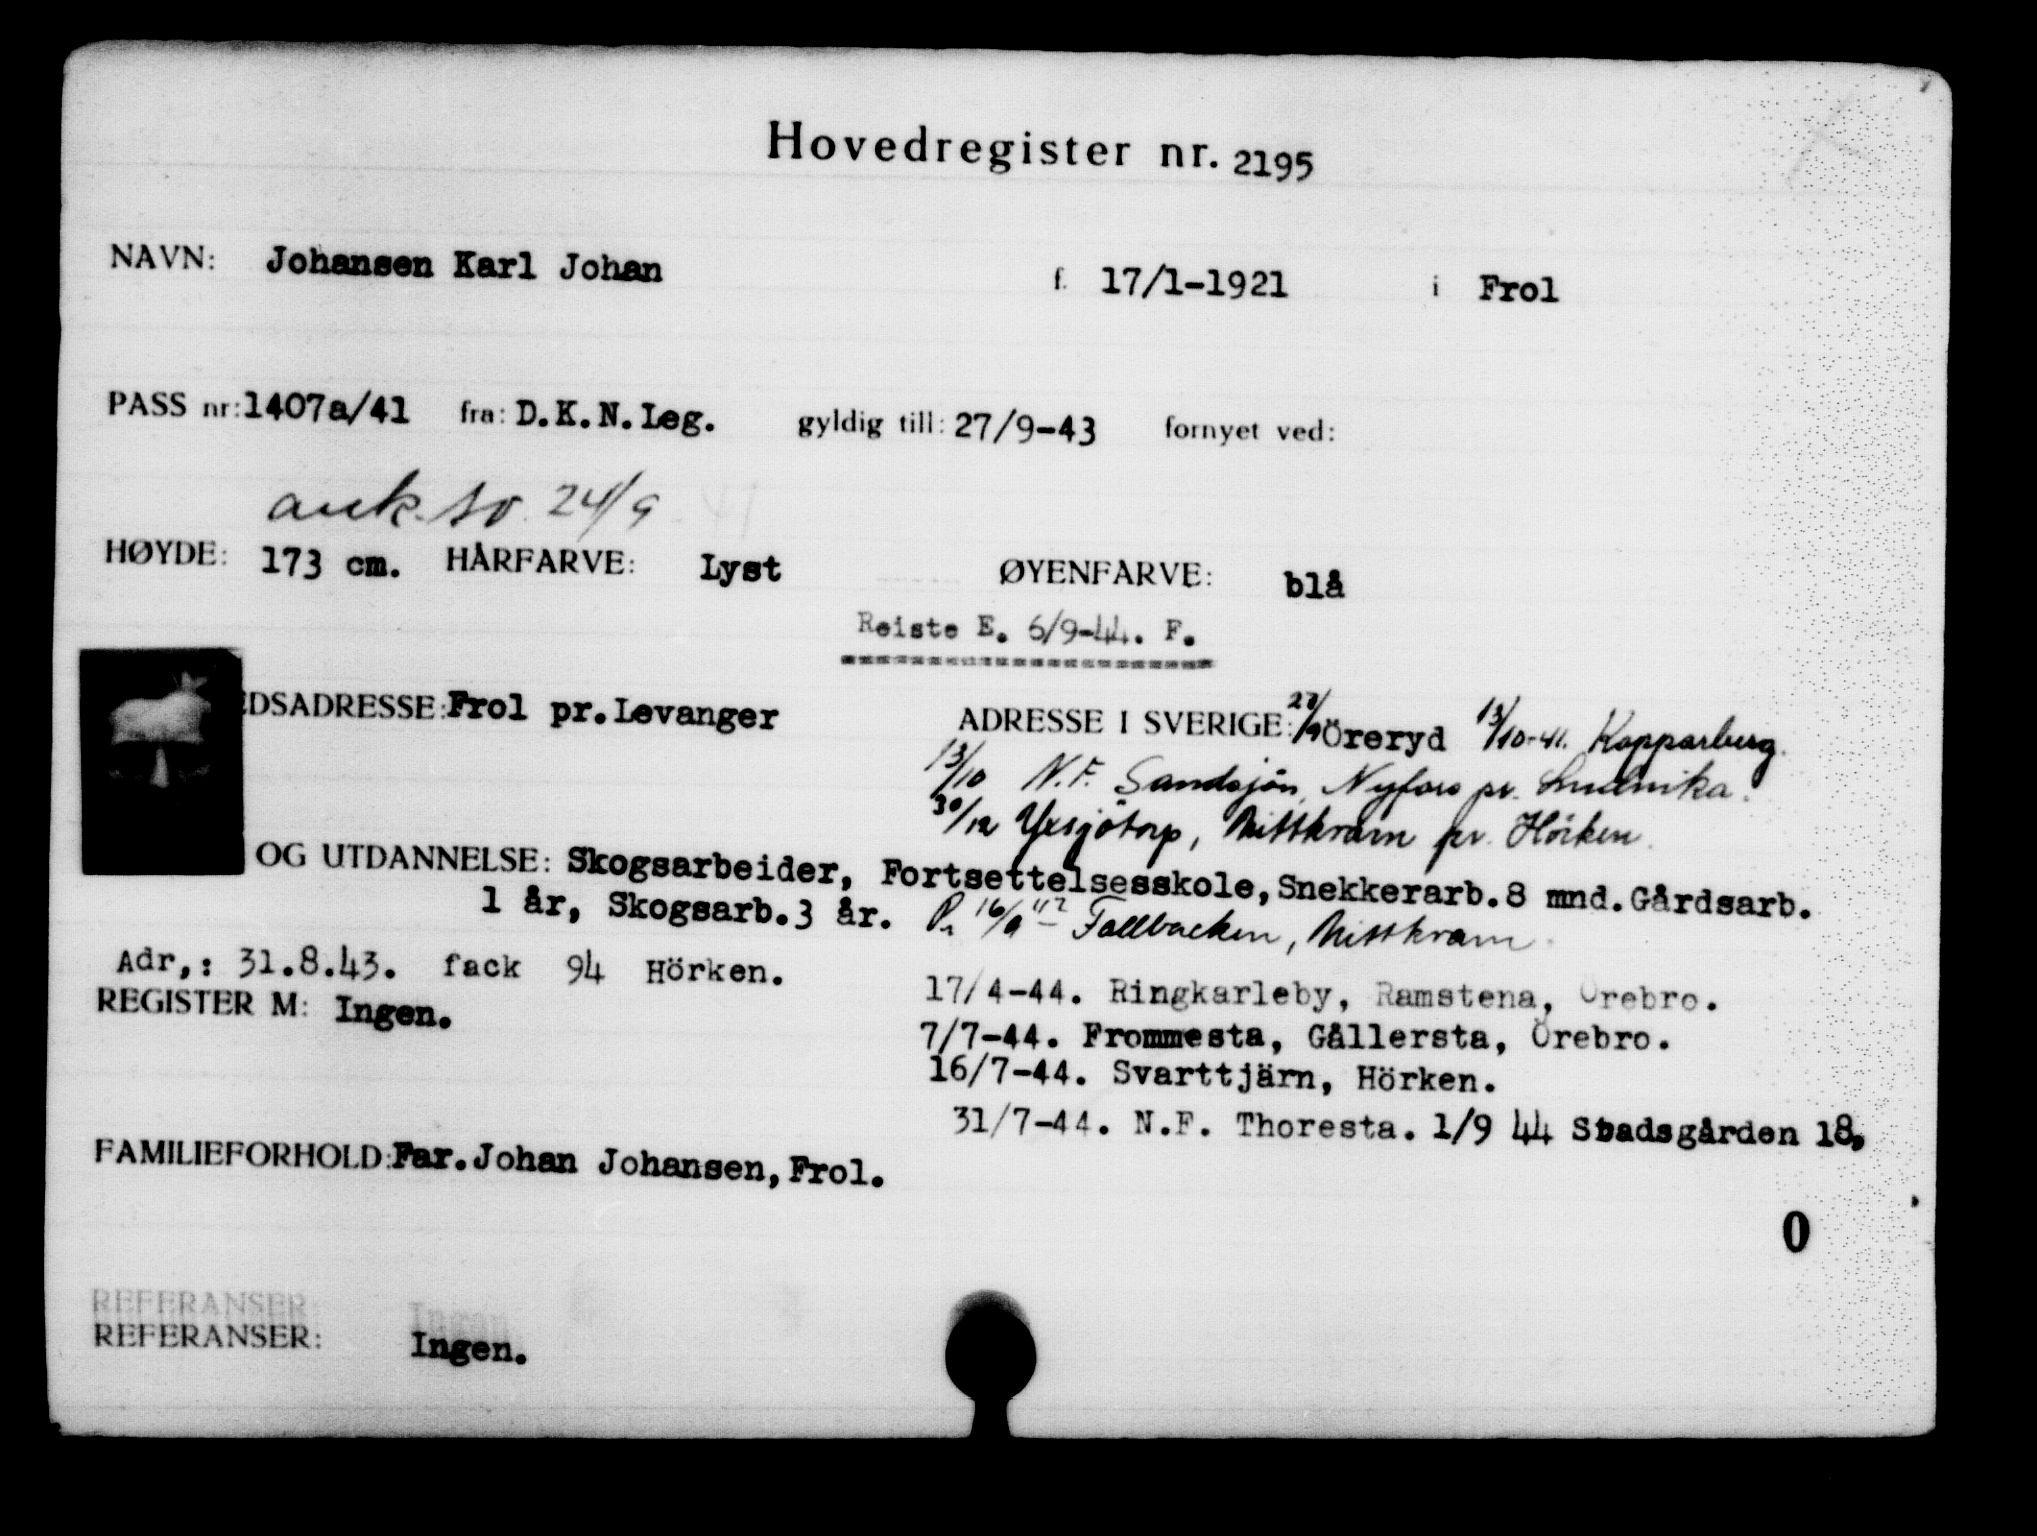 Hovedregister nr. 2195
NAVN: Johansen Karl Johan f. 17/1-1921 i Frol
PASS nr: 1407a/41 fra: D.K.N.Leg. gyldig till: 27/9-43 fornyet ved:
ank. so. 24/9
HØYDE: 173 cm. HÅRFARVE: Lyst ØYENFARVE: blå
Reiste E. 6/9-44. F.
EDSADRESSE: Frol pr.Levanger ADRESSE I SVERIGE: 27/9 Öreryd 13/10-41. Kopparberg.
13/10 N.F. Sandsjön, Nyfors pr.
30/12 Yxsjötorp, Nittkvarn pr. Hörken.
OG UTDANNELSE: Skogsarbeider, Fortsettelsesskole, Snekkerarb. 8 mnd. Gårdsarb.
1 år, Skogsarb. 3 år. 16/9 42 Fallbacken, Nittkvarn
Adr,: 31.8.43. fack 94 Hörken.
17/4-44. Ringkarleby, Ramstena, Örebro.
REGISTER M: Ingen.
7/7-44. Frommesta, Gållersta, Örebro.
16/7-44. Svarttjärn, Hörken.
31/7-44. N.F. Thoresta. 1/9 44 Stadsgården 18,
FAMILIEFORHOLD: Far. Johan Johansen, Frol.
0
REFERANSER
Ingen
REFERANSER: Ingen.